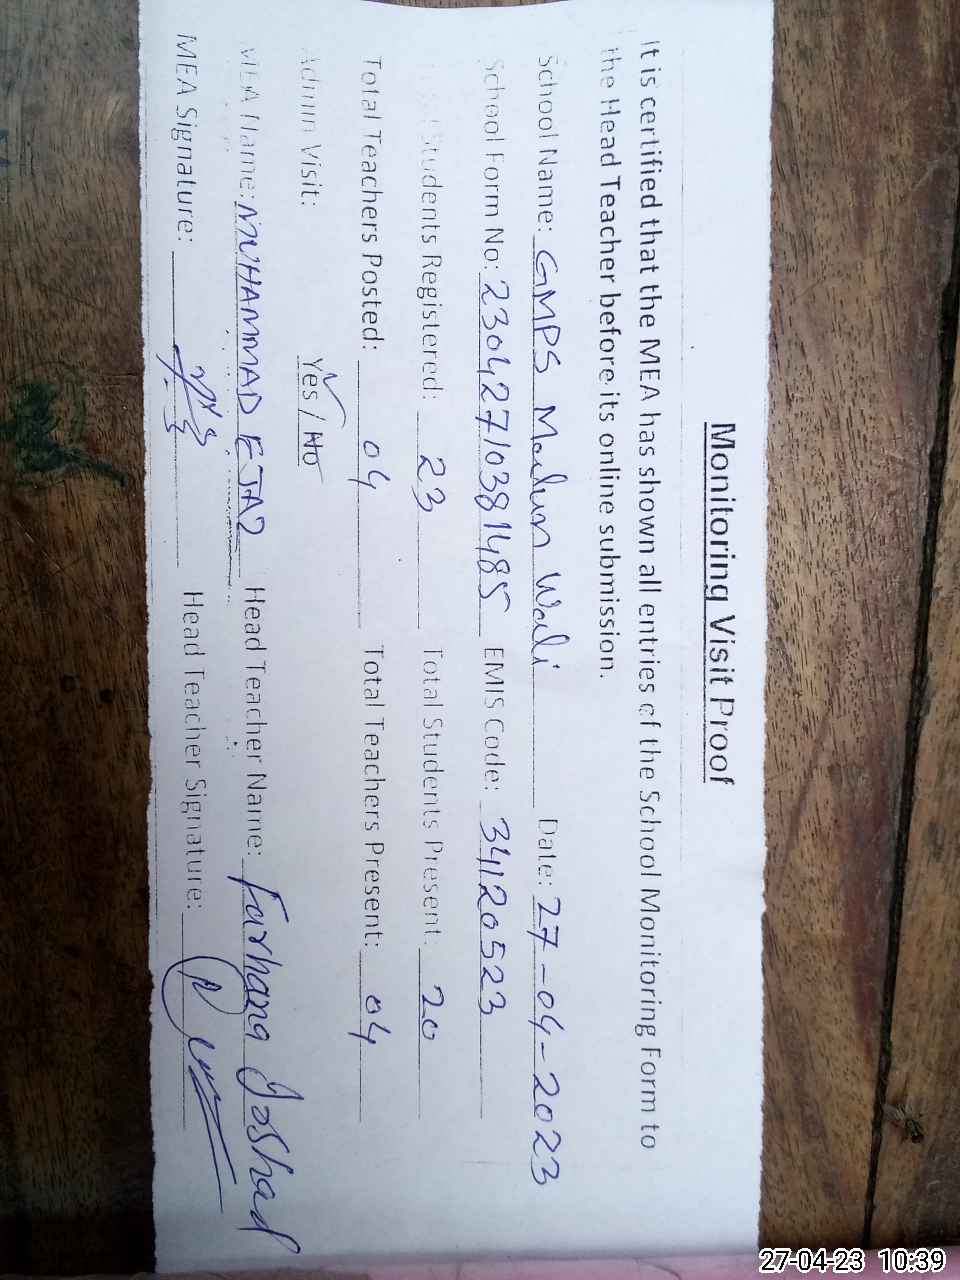 Monitoring Visit Proof
It is certified that the MEA has shown all entries of the School Monitoring Form to
the Head Teacher before its online submission.
School Name: GMPS Wali Date: 27-04-2023
School Form No: 23042710381485 EMIS Code: 34120523
Students Registered: 23 Total Students Present: 20
Total Teachers Posted: 04 Total Teachers Present: 04
Admin Visit: Yes / No
MEA Name: MUHAMMAD EJAZ Head Teacher Name: Farhana
MEA Signature: Head Teacher Signature:
27-04-23 10:39